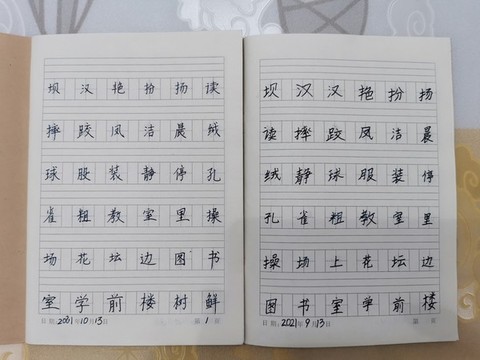 坝 汉 艳 扮 扬 读
摔 跤 凤 洁 晨 绒
球 服 装 静 停 孔
雀 粗 教 室 里 操
场 花 坛 边 图 书
室 学 前 楼 树 鲜
日期: 2021年10月13日 第 1 页
坝 汉 汉 艳 扮 扬
读 摔 跤 凤 洁 晨
绒 静 球 服 装 停
孔 雀 粗 教 室 里
操 场 上 花 坛 边
图 书 室 学 前 楼
日期: 2021年9月13日 第 页